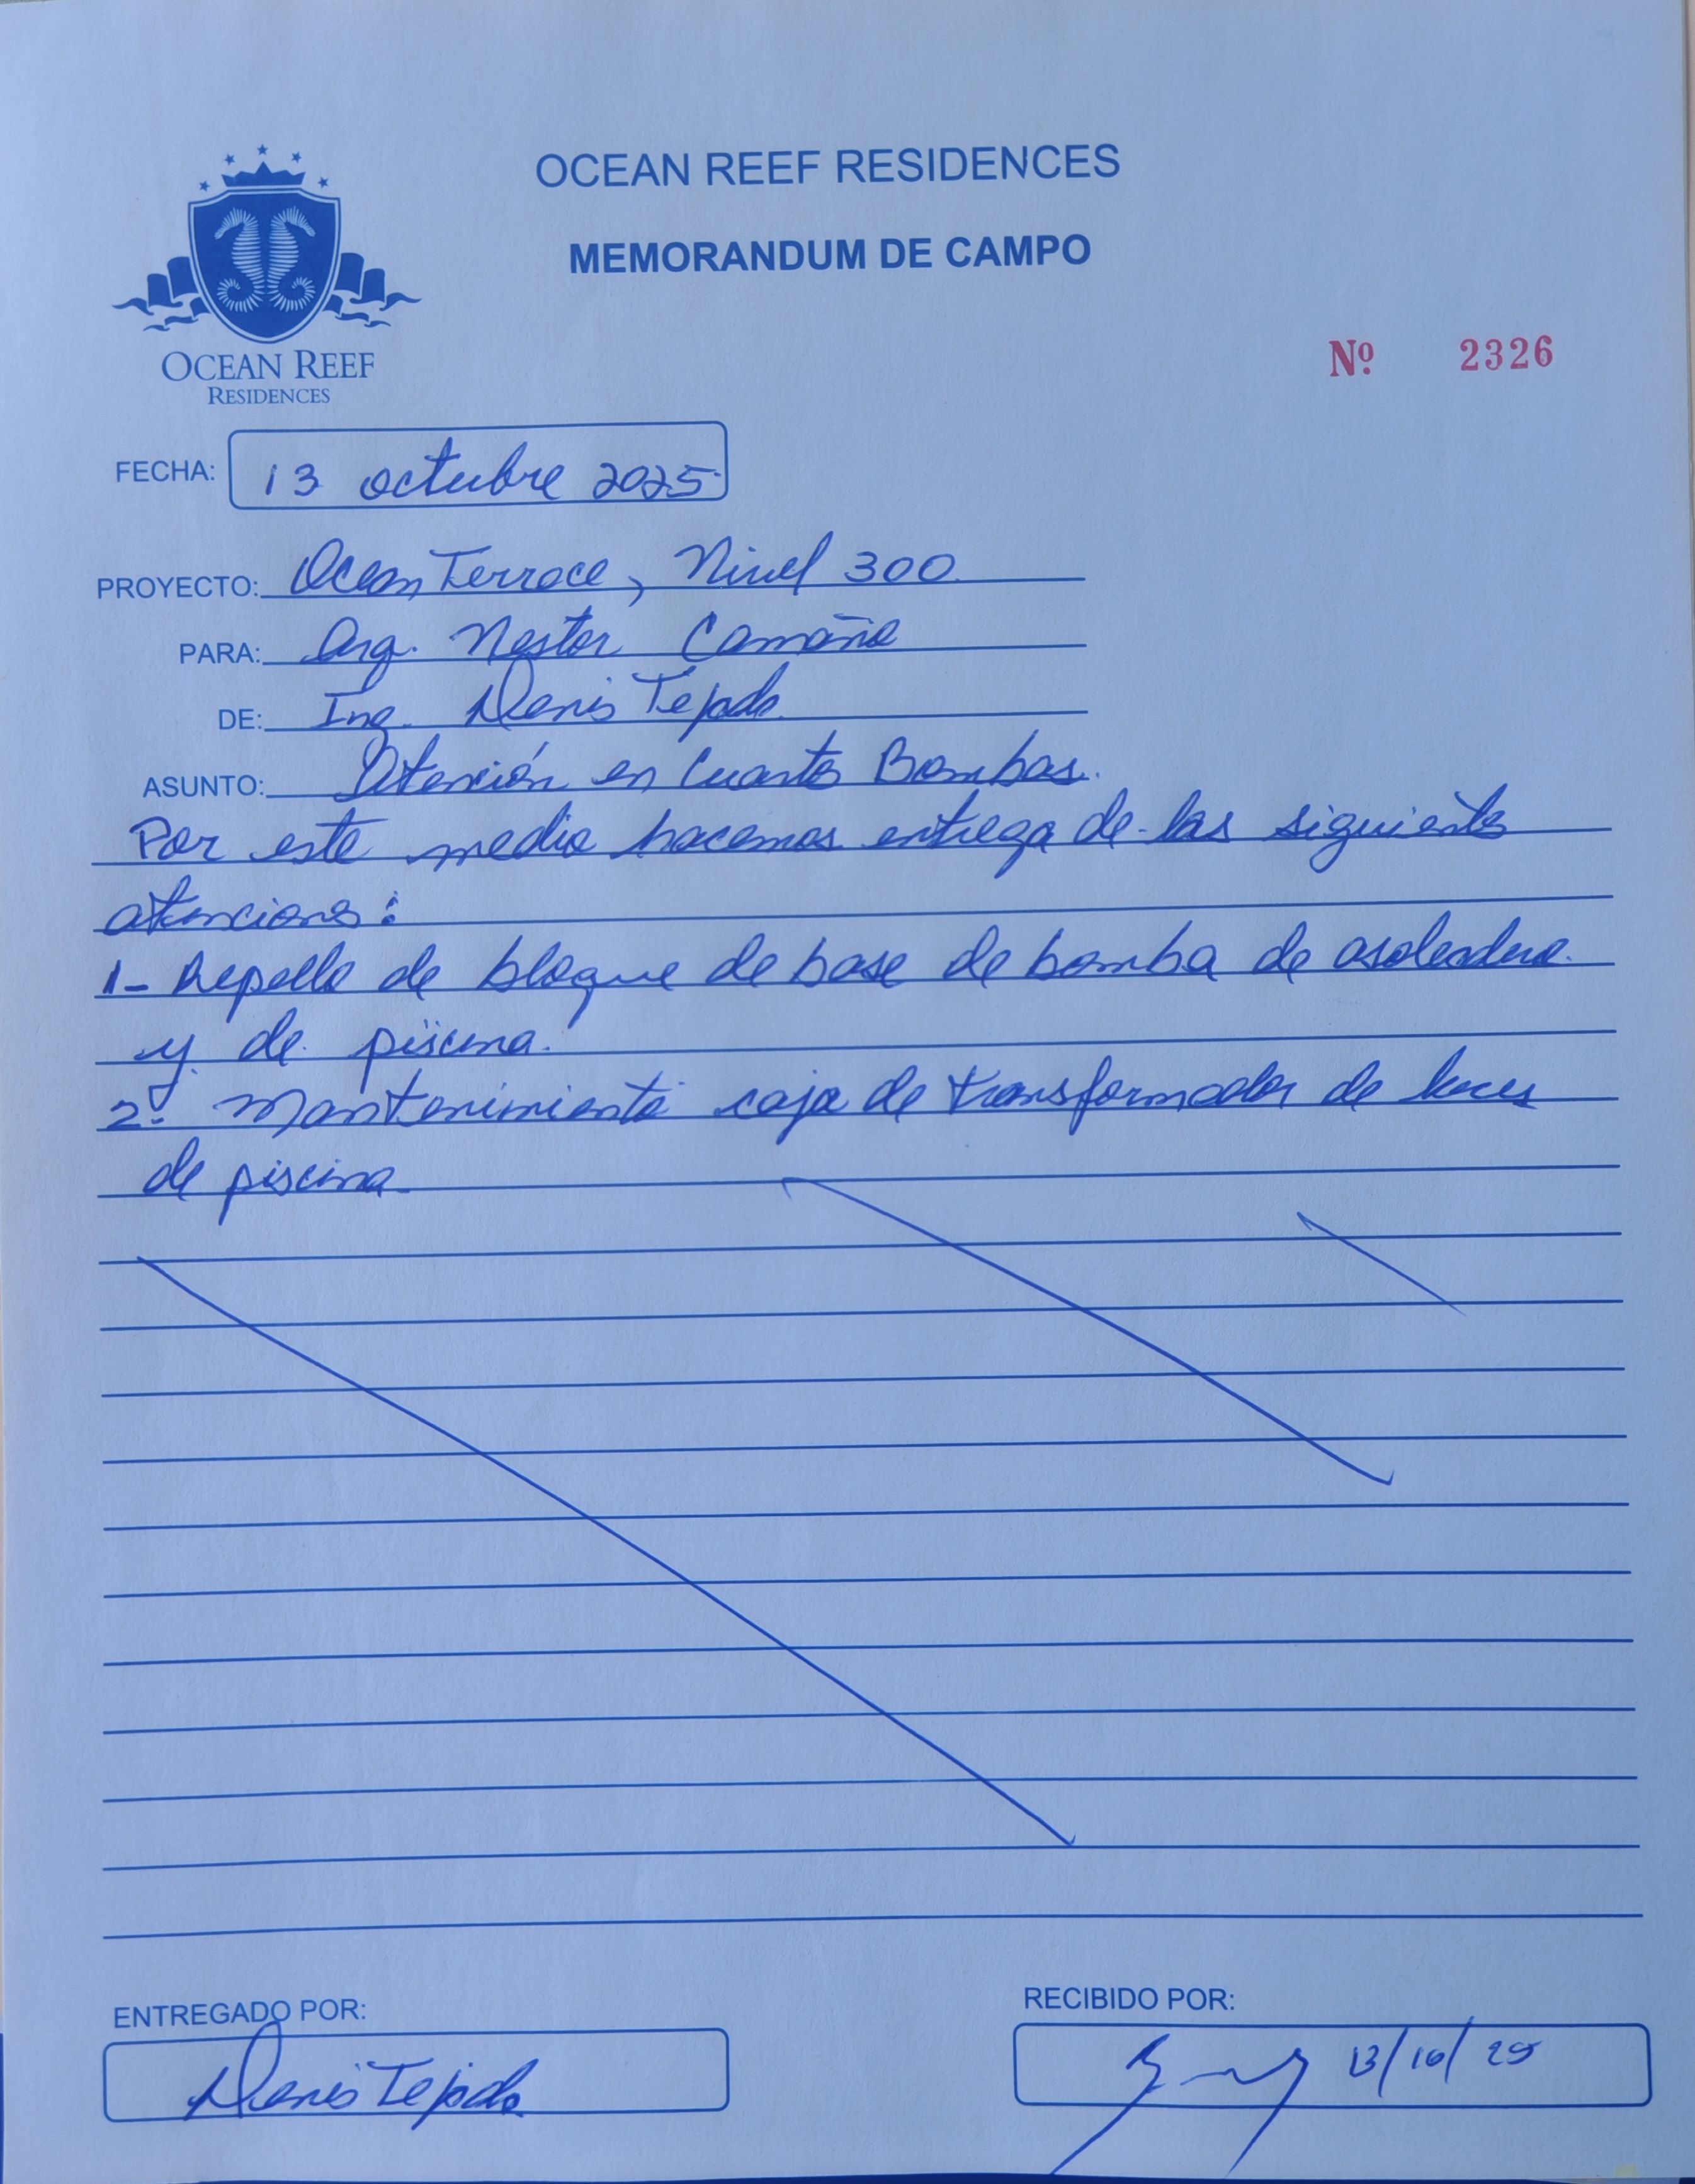 OCEAN REEF RESIDENCES
MEMORANDUM DE CAMPO
OCEAN REEF
RESIDENCES
Nº 2326
FECHA: 13 octubre 2025
PROYECTO: Ocean Terrace, Nivel 300
PARA: Arq. Nestor Camaño
DE: Ing. Denis Tejada
ASUNTO: Atención en Cuarto Bombas.
Por este medio hacemos entrega de las siguiente
atenciones:
1- Repello de bloque de base de bomba de asoleadero.
y de piscina.
2º Mantenimiento caja de transformador de luces
de piscina
ENTREGADO POR:
RECIBIDO POR:
Denis Tejada
13/10/25